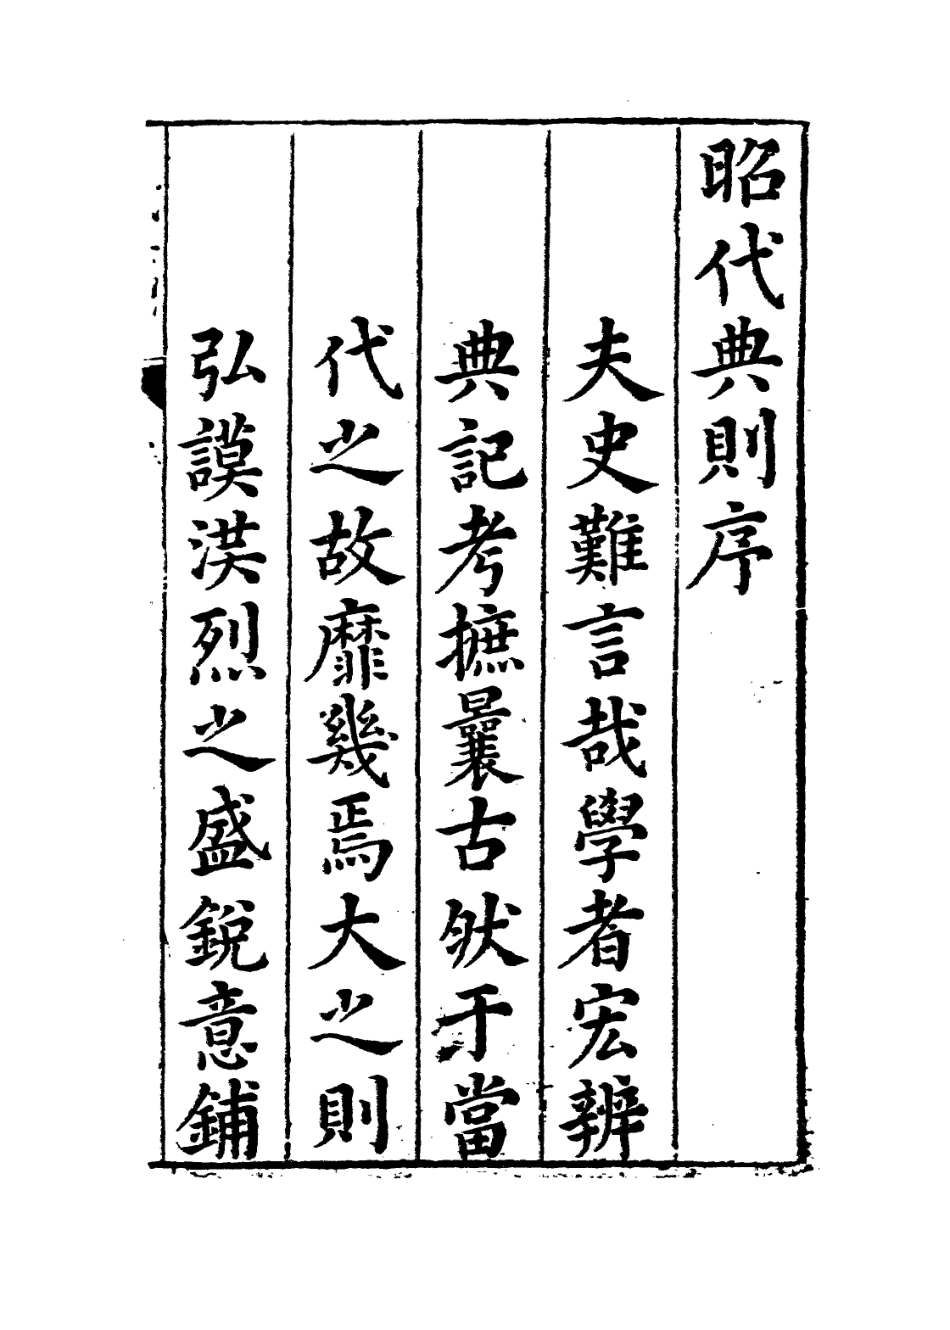 昭代典則序
夫史難言哉學者宏辨
典記考摭曩古然于當
代之故靡幾焉大之則
弘謨洪烈之盛銳意鋪